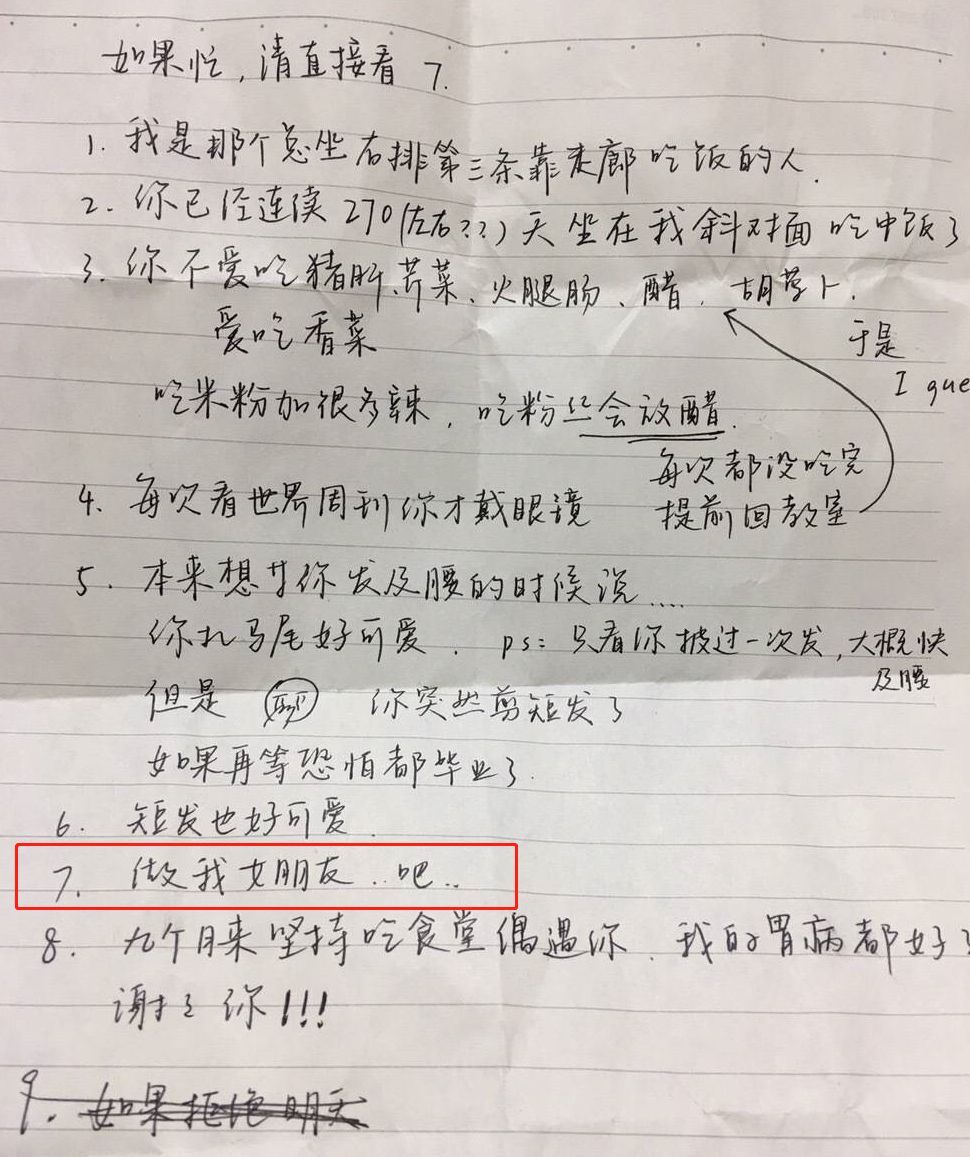 如果忙，请直接看 7.
1. 我是那个总坐右排第三条靠走廊吃饭的人.
2. 你已经连续 270(左右??) 天坐在我斜对面吃中饭了
3. 你不爱吃猪肝、芹菜、火腿肠、醋、胡萝卜.
爱吃香菜
于是
I gue
吃米粉加很多辣，吃粉丝会放醋.
每次都没吃完
提前回教室
4. 每次看世界周刊你才戴眼镜
5. 本来想等你发及腰的时候说....
你扎马尾好可爱. ps: 只看你披过一次发，大概快
及腰
但是 你突然剪短发了
如果再等恐怕都毕业了.
6. 短发也好可爱.
7. 做我女朋友..吧..
8. 九个月来坚持吃食堂偶遇你. 我的胃病都好了
谢了你!!!
9. 如果拒绝明天